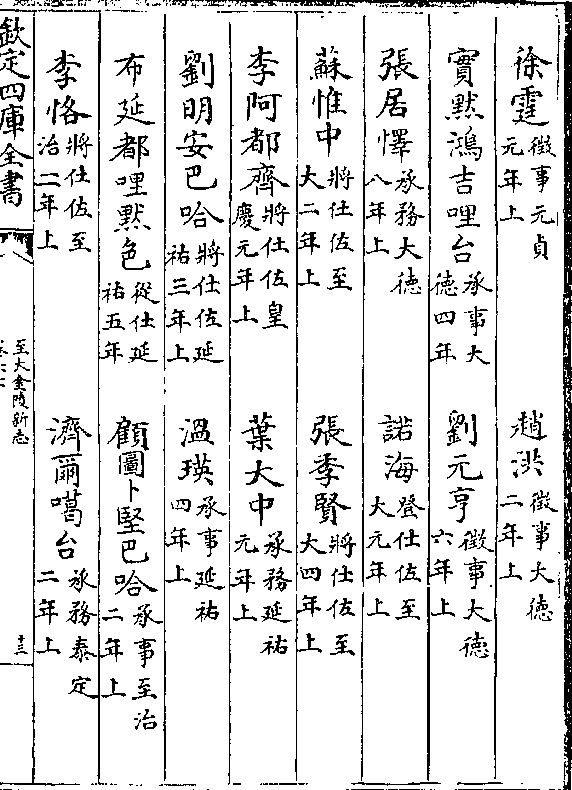 徐霆徵事元貞元年上 趙洪徵事大德二年上
實黙鴻吉哩台承事大德四年 劉元亨徵事大德六年上
張居懌承務大德八年上 諾海登仕佐至大元年上
蘇惟中將仕佐至大二年上 張季賢將仕佐至大四年上
李阿都齊將仕佐皇慶元年上 葉大中承務延祐元年上
劉明安巴哈將仕佐延祐三年上 溫瑛承事延祐四年上
布延都哩黙色從仕延祐五年 顧圖卜堅巴哈承事至治二年上
李恪將仕佐至治二年上 濟爾噶台承務泰定二年上
欽定四庫全書
至大金陵新志
十三